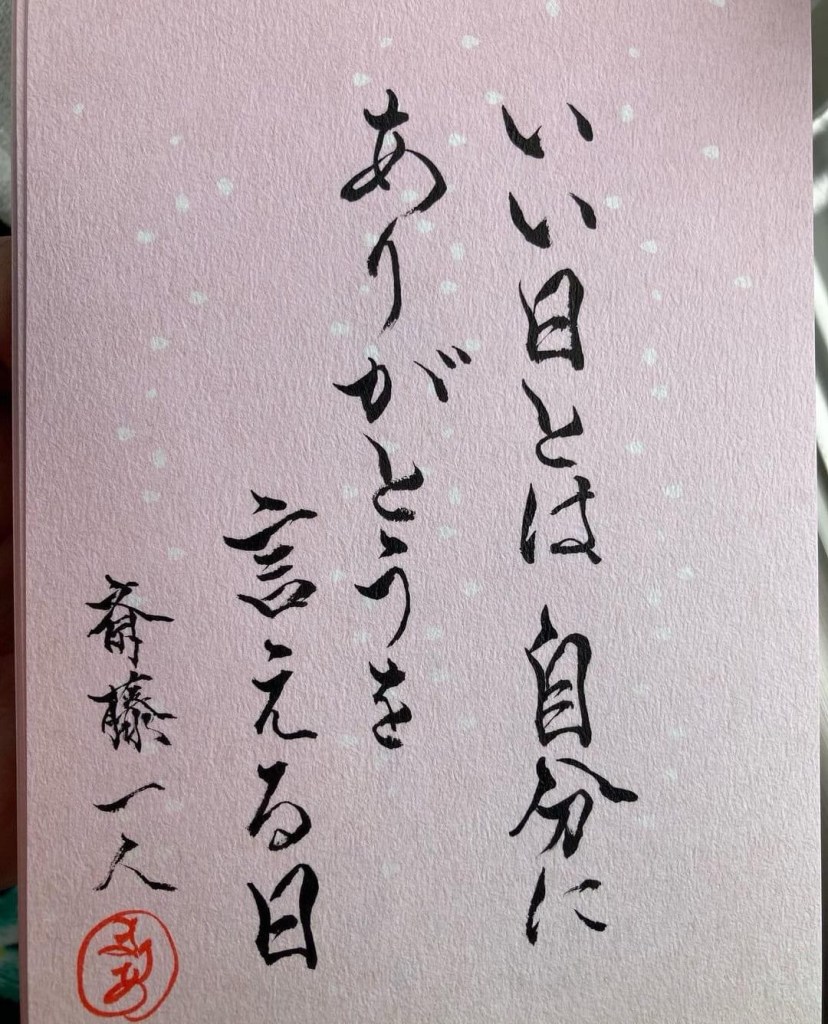 いい日とは 自分に
ありがとうを
言える日
斎藤一人